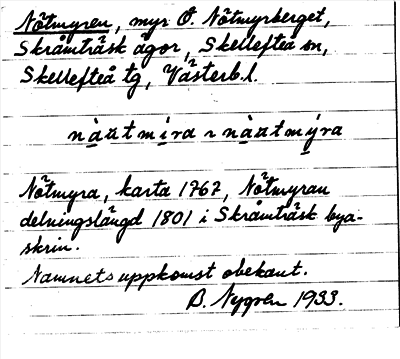 Nötmyren, myr Ö. Nötmyrberget,
Skråmträsk ägor, Skellefteå sn,
Skellefteå tg, Västerb. l.
nàtmira ~ nàtmýra
Nötmyra, karta 1767, Nötmyran
delningslängd 1801 i Skråmträsk bya-
skrin.
Namnets uppkomst obekant.
B. Nygren 1933.